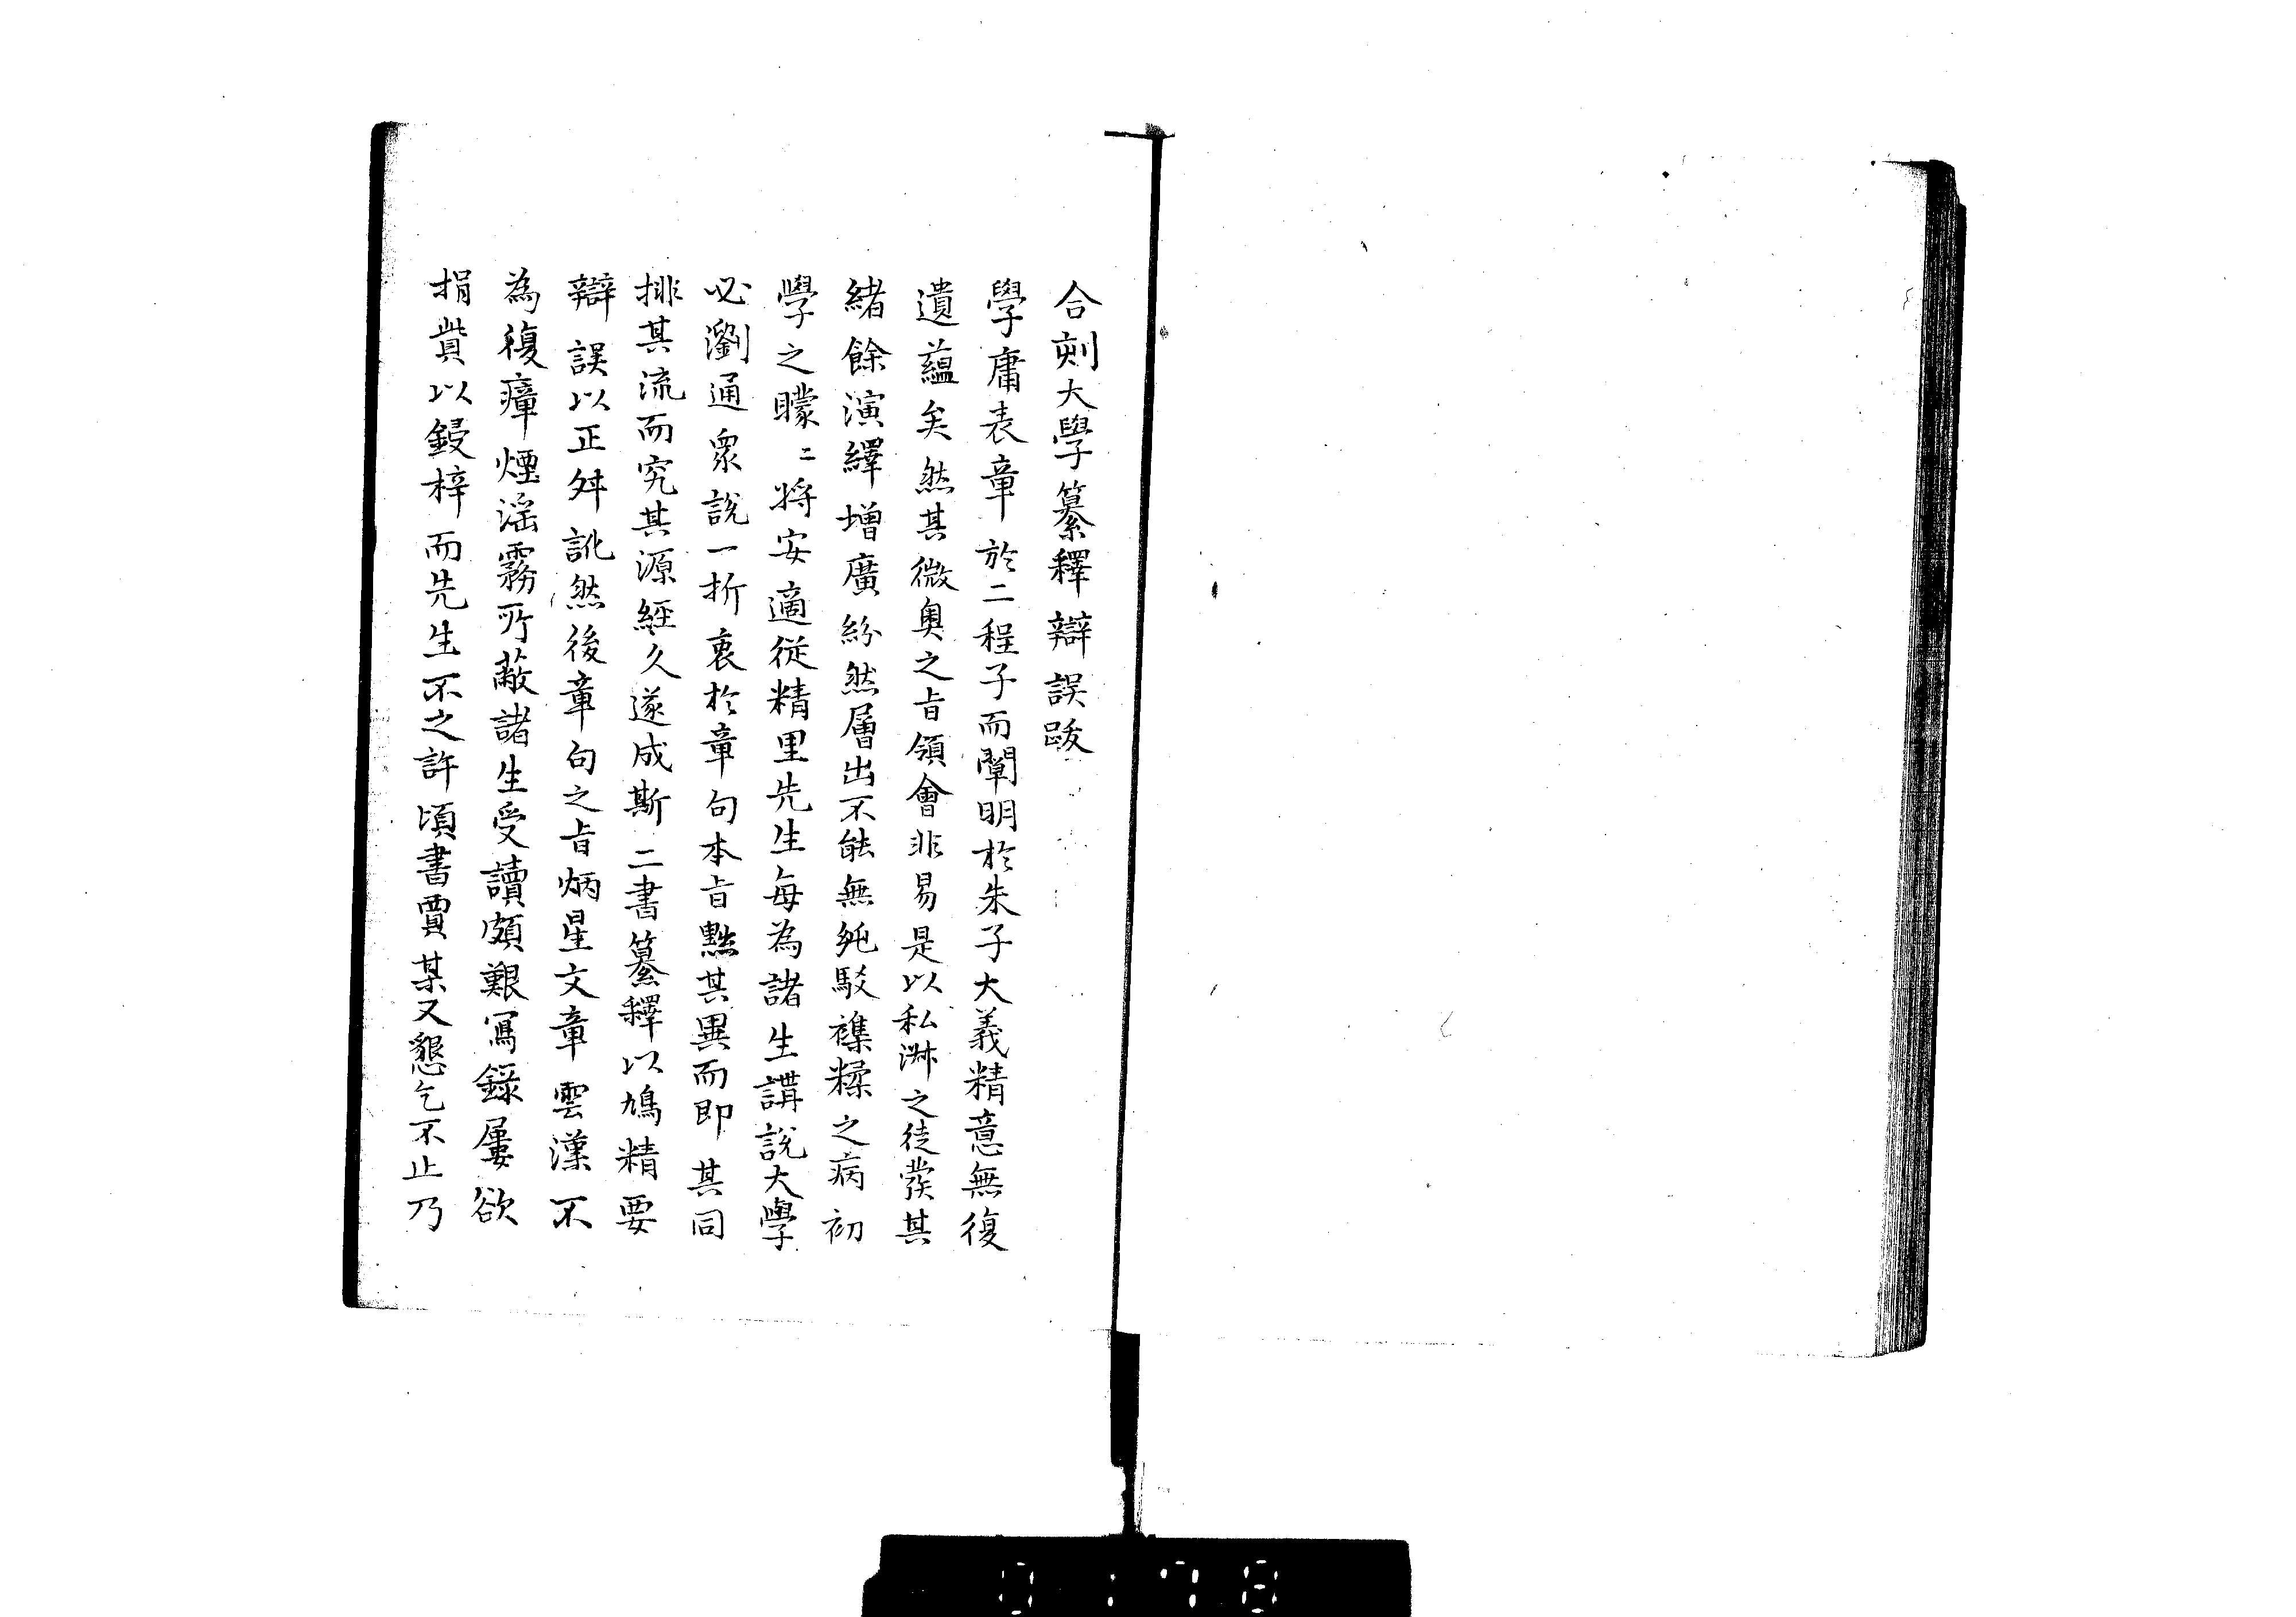 合刻大學纂釋辯誤跋
學庸表章於二程子而闡明於朱子大義精意無復
遺蘊矣然其微奥之旨領會非易是以私淑之徒發其
緒餘演繹增廣紛然層出不能無純駁襍糅之病初
學之矇〻將安適從精里先生毎為諸生講說大學
必瀏通衆說一折衷於章句本旨黜其異而即其同
排其流而究其源經久遂成斯二書纂釋以鳩精要
辯誤以正舛訛然後章句之旨炳星文章雲漢不
為複瘴煙滛霧所蔽諸生受讀頗艱寫錄屢欲
捐貲以鋟梓而先生不之許頃書賈某又懇乞不止乃
0178